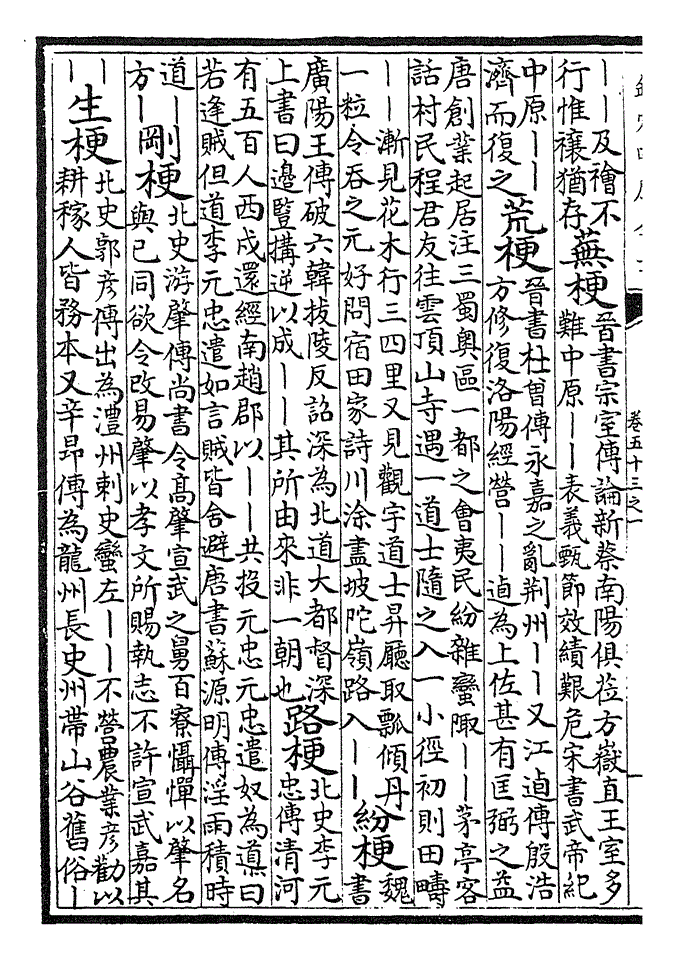 卷五十三之一
——及禬不
行惟禳猶存
蕪梗
晉書宗室傳論新蔡南陽俱莅方嶽直王室多
難中原——表義甄節效績艱危宋書武帝紀
中原——
濟而復之
荒梗
晉書杜曽傳永嘉之亂荆州——又江逌傳殷浩
方修復洛陽經營——逌為上佐甚有匡弼之益
唐創業起居注三蜀奥區一都之會夷民紛雜蠻陬——茅亭客
話村民程君友往雲頂山寺遇一道士隨之入一小徑初則田疇
——漸見花木行三四里又見觀宇道士昇廳取瓢傾丹
一粒令吞之元好問宿田家詩川涂盡坡陀嶺路入——
紛梗
魏
書
廣陽王傳破六韓拔陵反詔深為北道大都督深
上書曰邊豎搆逆以成——其所由來非一朝也
路梗
北史李元
忠傳清河
有五百人西戍還經南趙郡以——共投元忠元忠遣奴為導曰
若逢賊但道李元忠遣如言賊皆舍避唐書蘇源明傳淫雨積時
道——
方——
剛梗
北史游肇傳尚書令高肇宣武之舅百寮懾憚以肇名
與已同欲令改易肇以孝文所賜執志不許宣武嘉其
—
—
生梗
北史郭彦傳出為澧州刺史蠻左——不營農業彦勸以
耕稼人皆務本又辛昂傳為龍州長史州帶山谷舊俗—